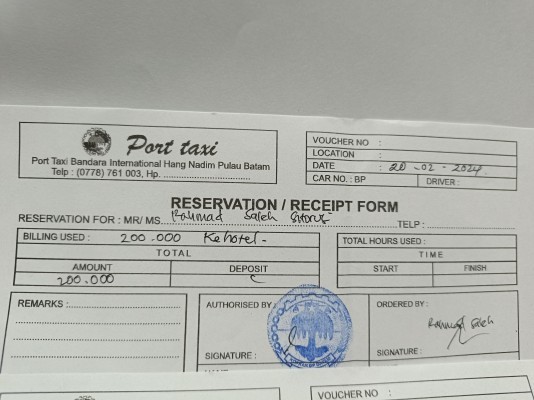 Port taxi
Port Taxi Bandara International Hang Nadim Pulau Batam
Telp : (0778) 761 003, Hp. ...............................
VOUCHER NO :
LOCATION :
DATE : 20 - 02 - 2024
CAR NO. : BP DRIVER :
RESERVATION / RECEIPT FORM
RESERVATION FOR : MR/ MS....Rahmad Saleh Sitorus....TELP :
BILLING USED : 200.000 Kehotel -
TOTAL
AMOUNT DEPOSIT
200.000
TOTAL HOURS USED :
TIME
START FINISH
REMARKS :
AUTHORISED BY :
SIGNATURE :
ORDERED BY :
Rahmad Saleh
SIGNATURE :
VOUCHER NO :